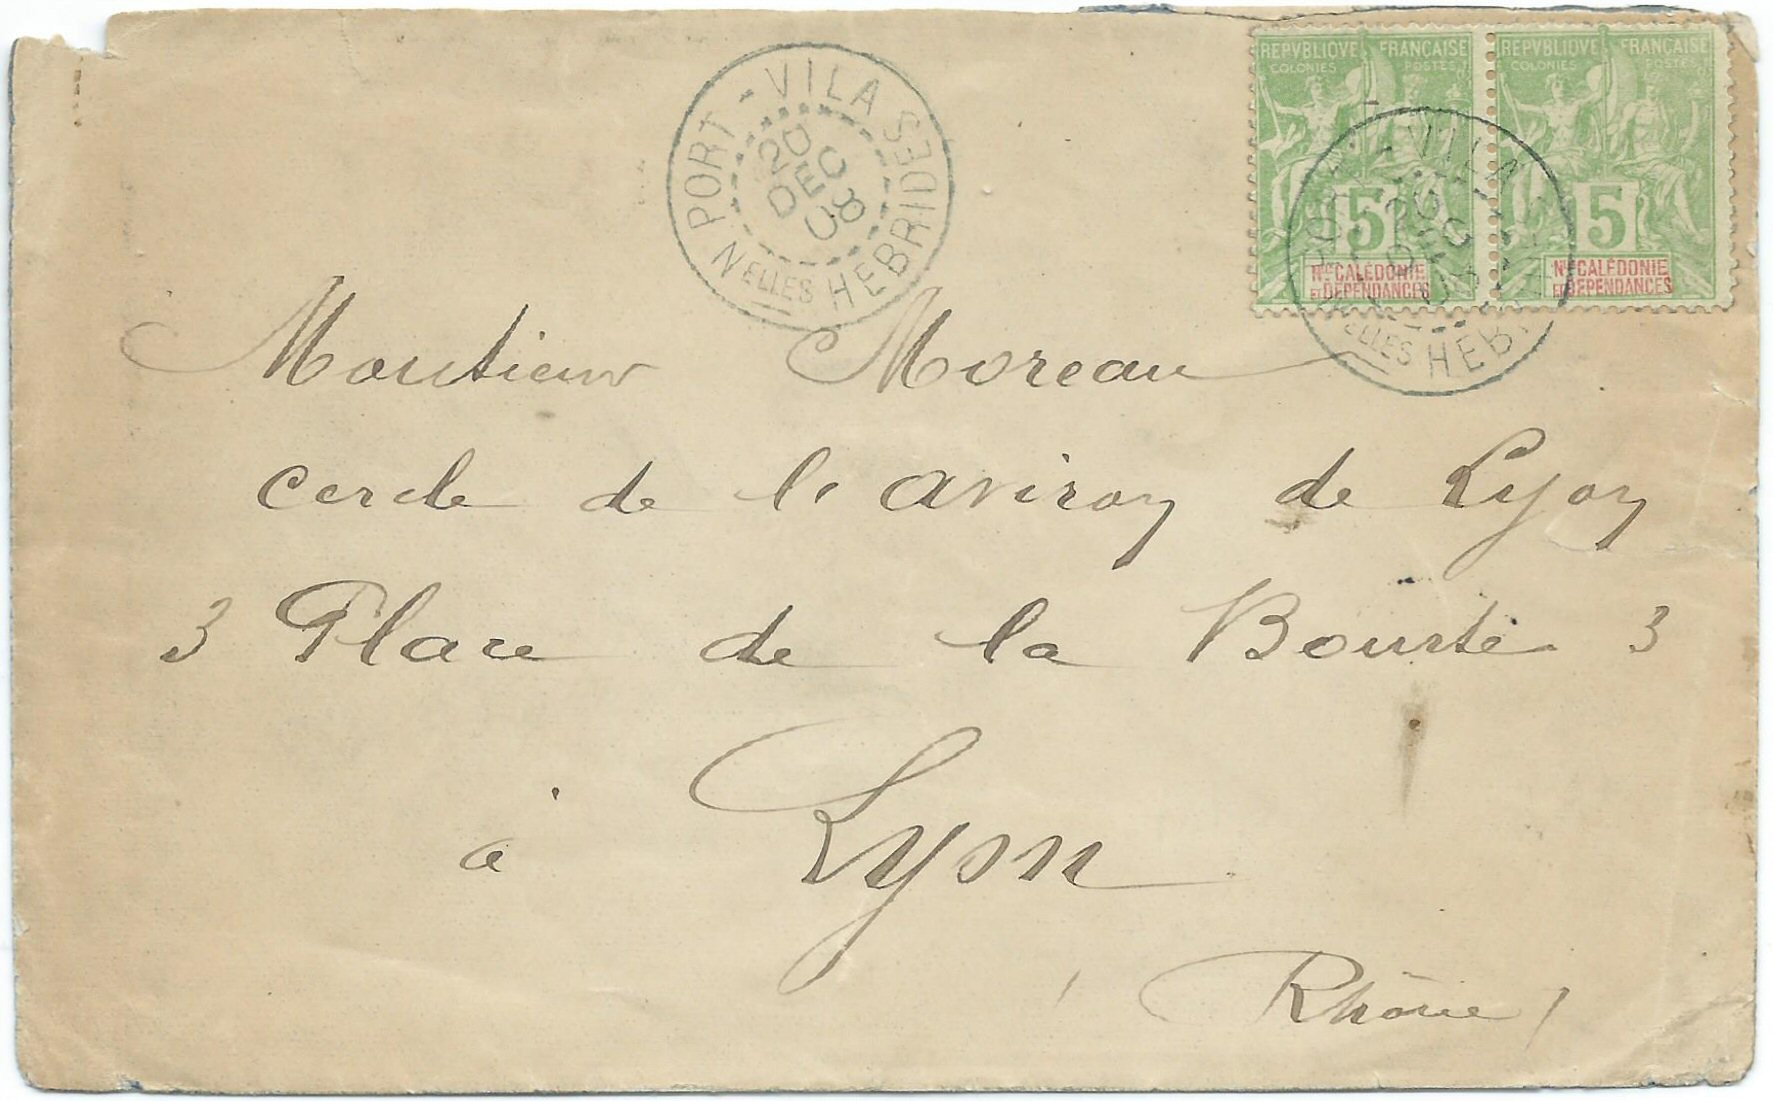 PORT-VILA
20
DEC
08
NELLES HEBRIDES
REPVBLIQVE FRANÇAISE
COLONIES POSTES
5
NLLE CALÉDONIE
ET DÉPENDANCES
REPVBLIQVE FRANÇAISE
COLONIES POSTES
5
NLLE CALÉDONIE
ET DÉPENDANCES
VILA
ELLES HEBR
Monsieur Moreau
cercle de l'aviron de Lyon
3 Place de la Bourse 3
à Lyon
(Rhône)